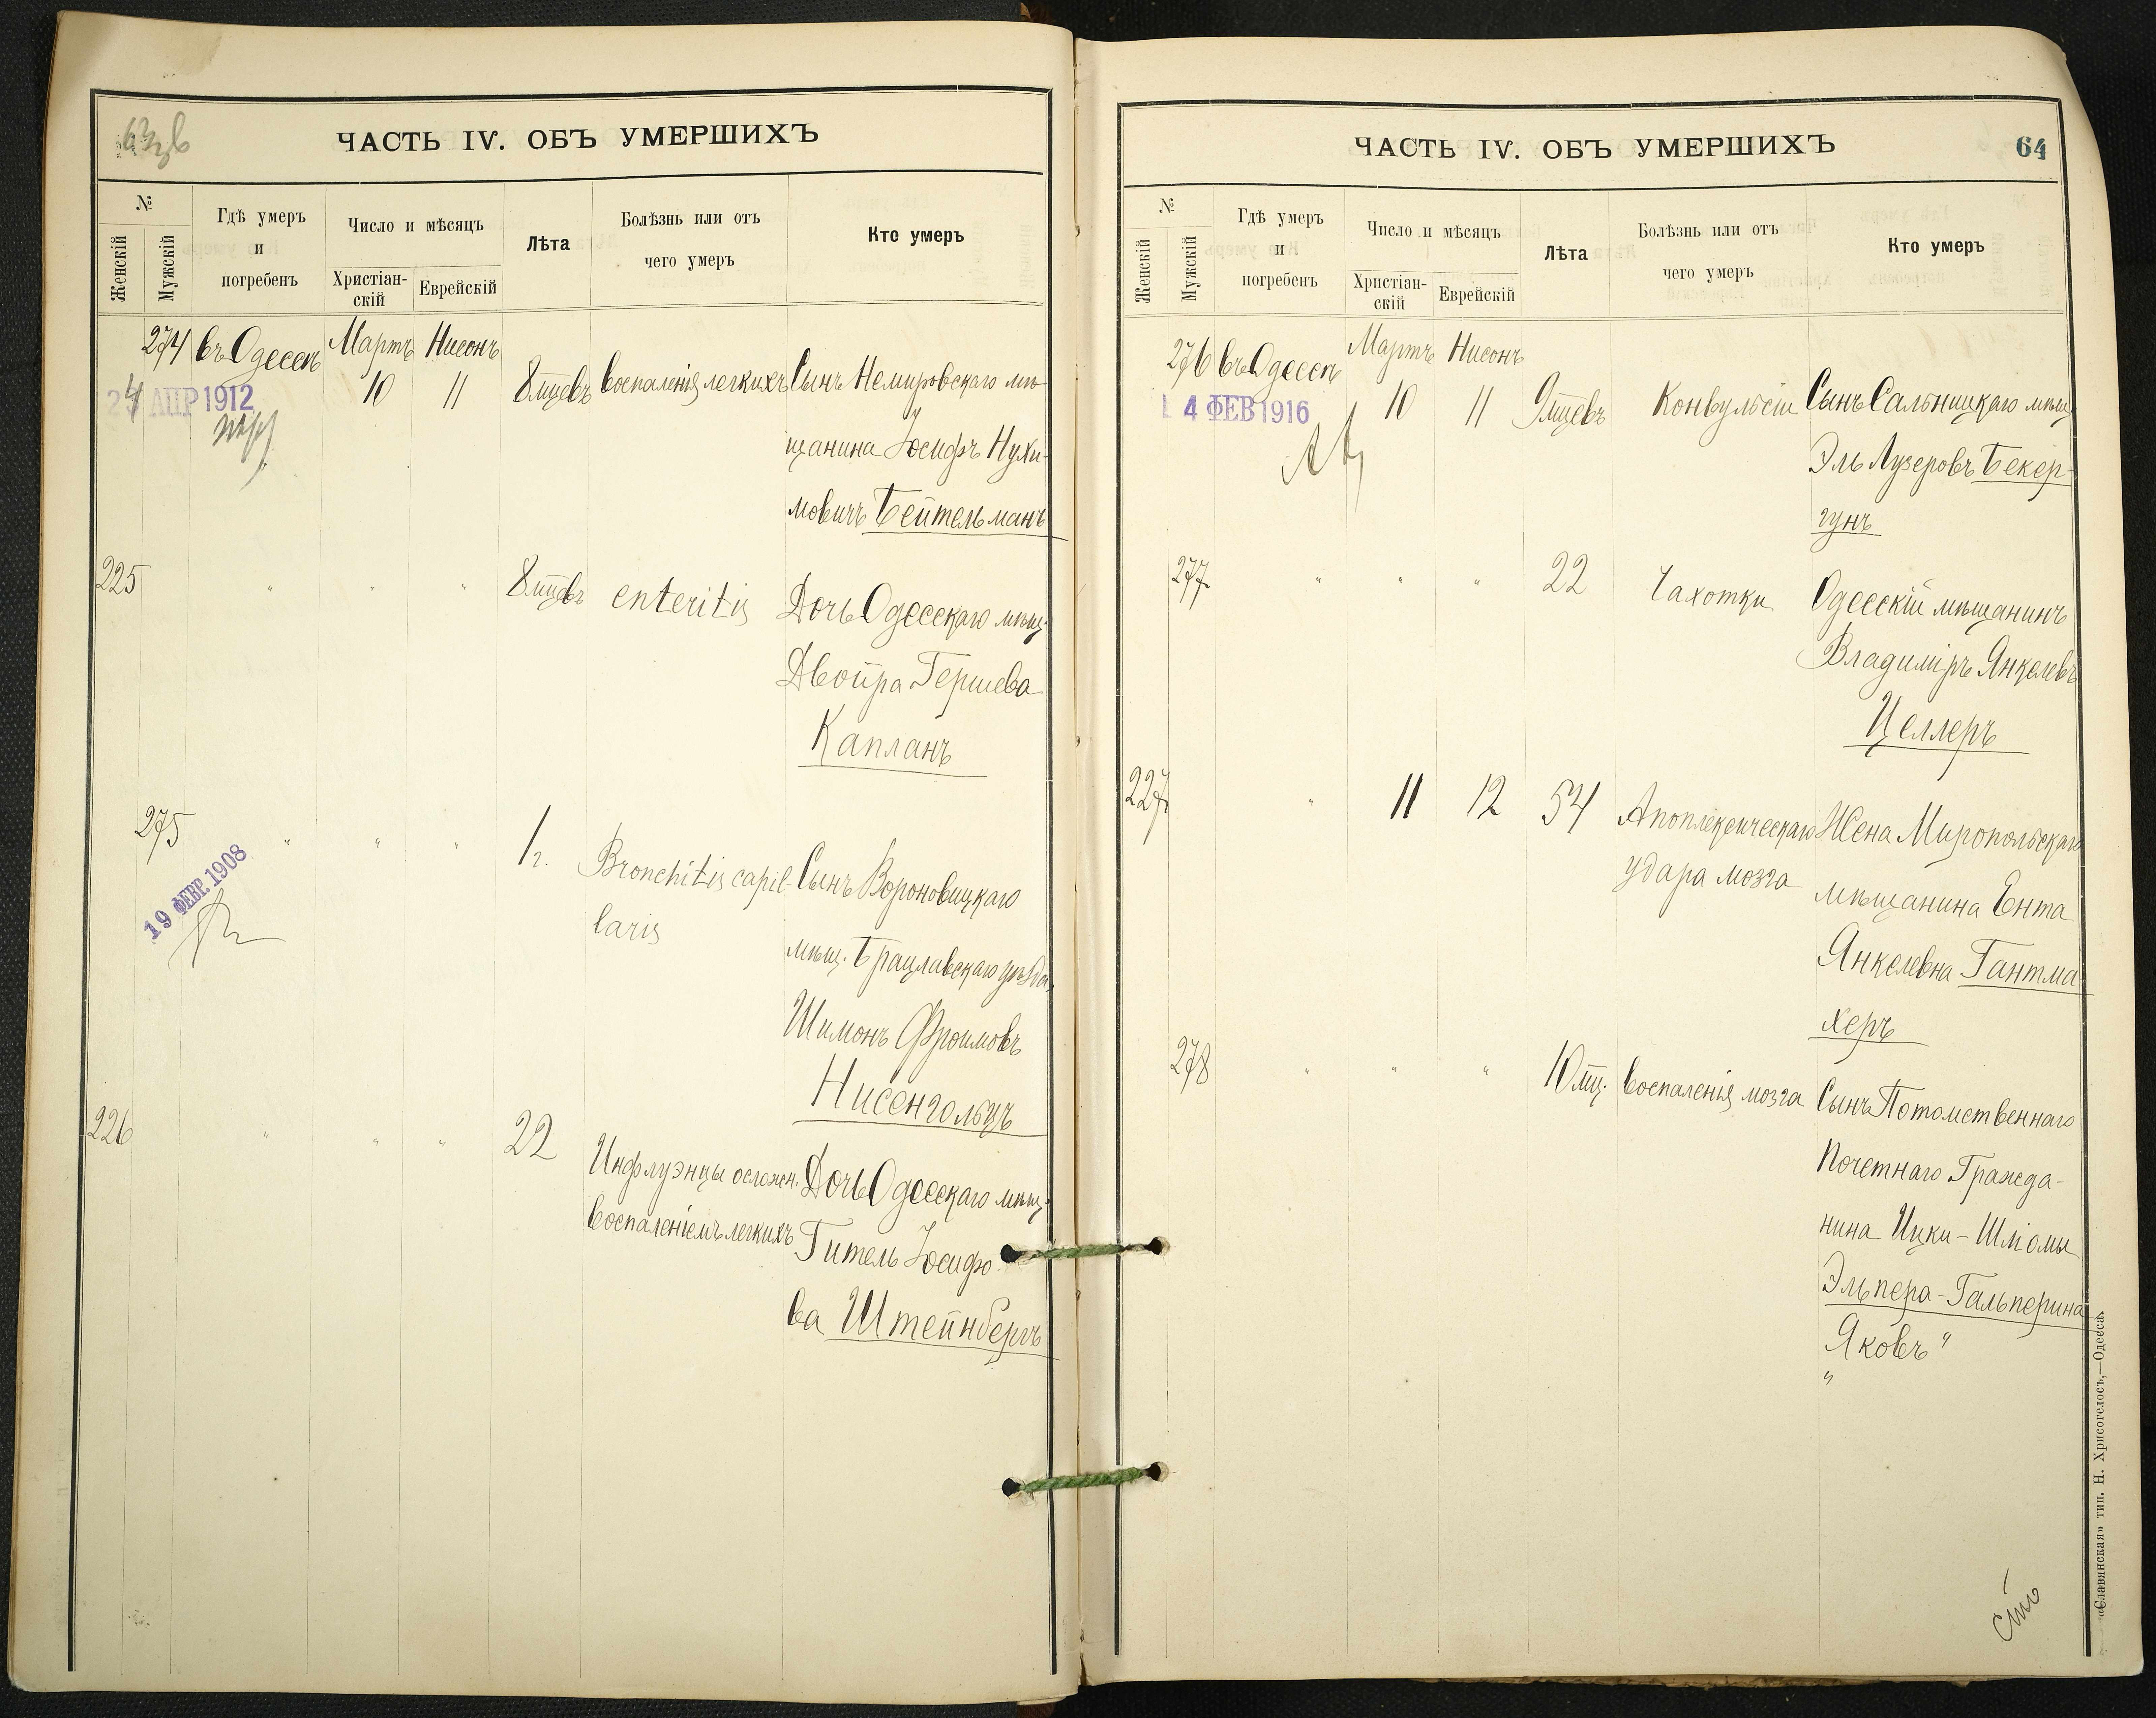 63об
ЧАСТЬ IV. ОБЪ УМЕРШИХЪ
№
Женскій
Мужскій
Гдѣ умеръ
и
погребенъ
Число и мѣсяцъ
Христіан-
скій
Еврейскій
Лѣта
Болѣзнь или отъ
чего умеръ
Кто умеръ
274 въ Одессѣ Мартъ Нисонъ
24 АПР 1912
10 11 8 мцевъ воспаленія легкихъ Сынъ Немировскаго мѣ-
щанина Іосифъ Нухи-
мовичъ Бейтельманъ
225 " " " 8 мцевъ enteritis Дочь Одесскаго мѣщ.
Двойра Гершева
Капланъ
275 " " " 1 г. Bronchitis capil- Сынъ Вороновицкаго
19 ФЕВР. 1908
laris
мѣщ. Брацлавскаго уѣзда
Шимонъ Фроимовъ
Нисенгольцъ
226 " " " 22 Инфлуэнцы осложн. Дочь Одесскаго мѣщ.
воспаленіемъ легкихъ
Гитель Іосифо-
ва Штейнбергъ
ЧАСТЬ IV. ОБЪ УМЕРШИХЪ
64
№
Женскій
Мужскій
Гдѣ умеръ
и
погребенъ
Число и мѣсяцъ
Христіан-
скій
Еврейскій
Лѣта
Болѣзнь или отъ
чего умеръ
Кто умеръ
276 въ Одессѣ Мартъ Нисонъ
4 ФЕВ 1916
10 11 9 мцевъ Конвульсіи Сынъ Сальницкаго мѣщ.
Эль Лузеровъ Бекер-
гунъ
277 " " " 22 Чахотки Одесскій мѣщанинъ
Владиміръ Янкелевъ
Целлеръ
227 " 11 12 54 Апоплексическаго Жена Миропольскаго
удара мозга
мѣщанина Ента
Янкелевна Гантма-
херъ
278 " " " 10 мц. воспаленія мозга Сынъ Потомственнаго
Почетнаго Гражда-
нина Ицки-Шліомы
Эльпера-Гальперина
"Яковъ"
«Славянская» тип. Н. Хрисогелосъ,—Одесса.